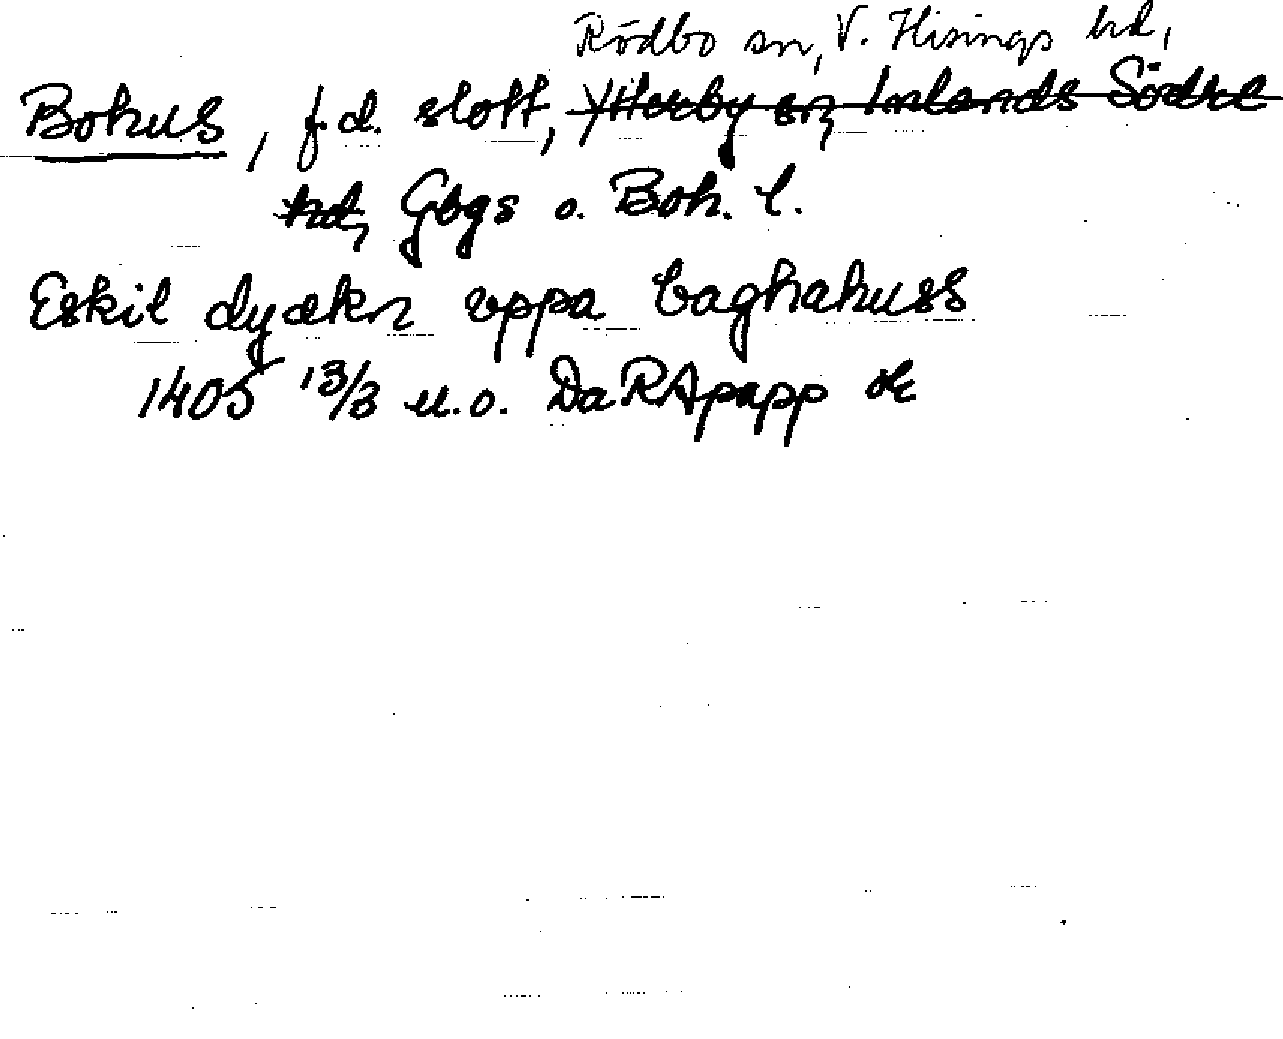 Rödbo sn, V. Hisings hd,
Bohus, f.d. slott, Ytterby sn, Inlands Södre
hd, Gbgs o. Boh. l.
Eskil dyækn vppa baghahuss
1405 13/3 u.o. DaRApapp or